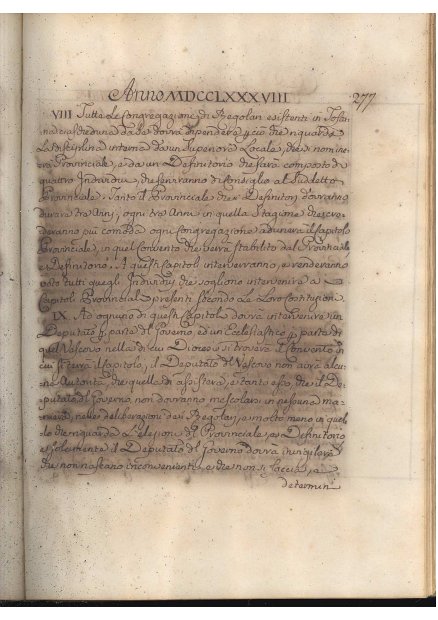 Anno MDCCLXXXVIII 277
VIII Tutte le Congregazioni di Regolari esistenti in Tosca-
na ciascheduna da se dovrà dipendere p ciò che riguarda
La Disciplina interna da un Superiore Locale, che si nomine-
rà Provinciale, e da un Definitorio che sarà composto di
quattro Individui, che serviranno di Consiglio al Suddetto
Provinciale. Tanto il Provinciale che i Definitori dovranno
durare tre Anni, ogni tre Anni in quella Stagione che cre-
deranno più comoda ogni Congregazione adunerà il Capitolo
Provinciale, in quel Convento che verrà stabilito dal Provinciale
e Definitorio. A questi Capitoli interverranno, e renderanno
voto tutti quegli Individui che sogliono intervenire a
Capitoli Provinciali presenti secondo le Loro Costituzioni.
IX. Ad ognuno di questi Capitoli dovrà intervenire un
Deputato p parte del Governo, ed un Ecclesiastico p parte di
quel Vescovo nella di cui Diocesi si troverà il Convento in
cui si terrà il Capitolo, il Deputato del Vescovo non avrà alcu-
na Autorità, che quella di assistere, e tanto esso, che il De-
putato del Governo non dovranno mescolarsi in nessuna ma-
niera nelle deliberazioni dei Regolari, e molto meno in quel-
lo che riguarda L'elezione del Provinciale, e Definitorio
e solamente il Deputato del Governo dovrà invigilare
che non nascano inconvenienti, e che non si faccia, o
determini